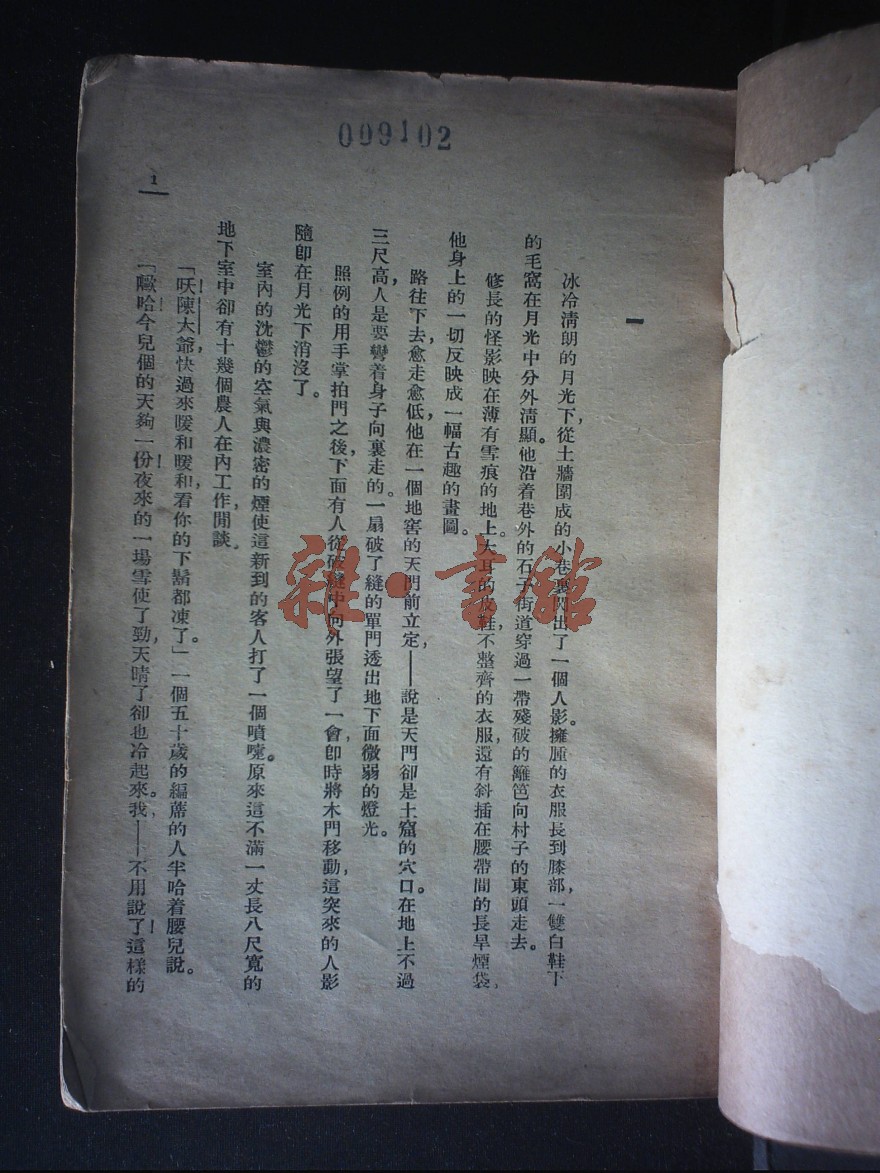 009102
一
冰冷清朗的月光下，從土牆圍成的小巷裏閃出了一個人影。擁腫的衣服長到膝部，一雙白鞋下
的毛窩在月光中分外清顯。他沿着巷外的石子街道穿過一帶殘破的籬笆向村子的東頭走去。
修長的怪影映在薄有雪痕的地上。大耳的皮鞋，不整齊的衣服，還有斜插在腰帶間的長旱煙袋，
他身上的一切反映成一幅古趣的畫圖。
路往下去，愈走愈低，他在一個地窖的天門前立定，——說是天門卻是土窟的穴口。在地上不過
三尺高，人是要彎着身子向裏走的。一扇破了縫的單門透出地下面微弱的燈光。
照例的用手掌拍門之後，下面有人從破縫中向外張望了一會，卽時將木門移動，這突來的人影
隨卽在月光下消沒了。
室內的沈鬱的空氣與濃密的煙使這新到的客人打了一個噴嚏。原來這不滿一丈長八尺寬的
地下室中卻有十幾個農人在內工作，閒談。
「呀！陳大爺，快過來暖和暖和，看你的下鬍都凍了。」一個五十歲的編蓆的人半哈着腰兒說。
「嗽！哈！今兒個的天夠一份！夜來的一場雪使了勁，天晴了卻也冷起來。我，——不用說了！這樣的
1
雜·書館